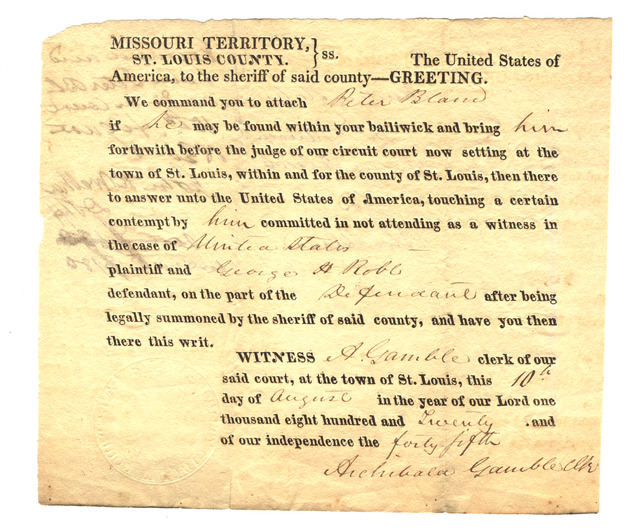 MISSOURI TERRITORY,
ST. LOUIS COUNTY. } ss. The United States of
America, to the sheriff of said county—GREETING.
We command you to attach Peter Bland
if he may be found within your bailiwick and bring him
forthwith before the judge of our circuit court now setting at the
town of St. Louis, within and for the county of St. Louis, then there
to answer unto the United States of America, touching a certain
contempt by him committed in not attending as a witness in
the case of United States
plaintiff and George H Robb
defendant, on the part of the Defendant after being
legally summoned by the sheriff of said county, and have you then
there this writ.
WITNESS A. Gamble clerk of our
said court, at the town of St. Louis, this 10th
day of August in the year of our Lord one
thousand eight hundred and Twenty . and
of our independence the forty fifth
Archibald Gamble Clk